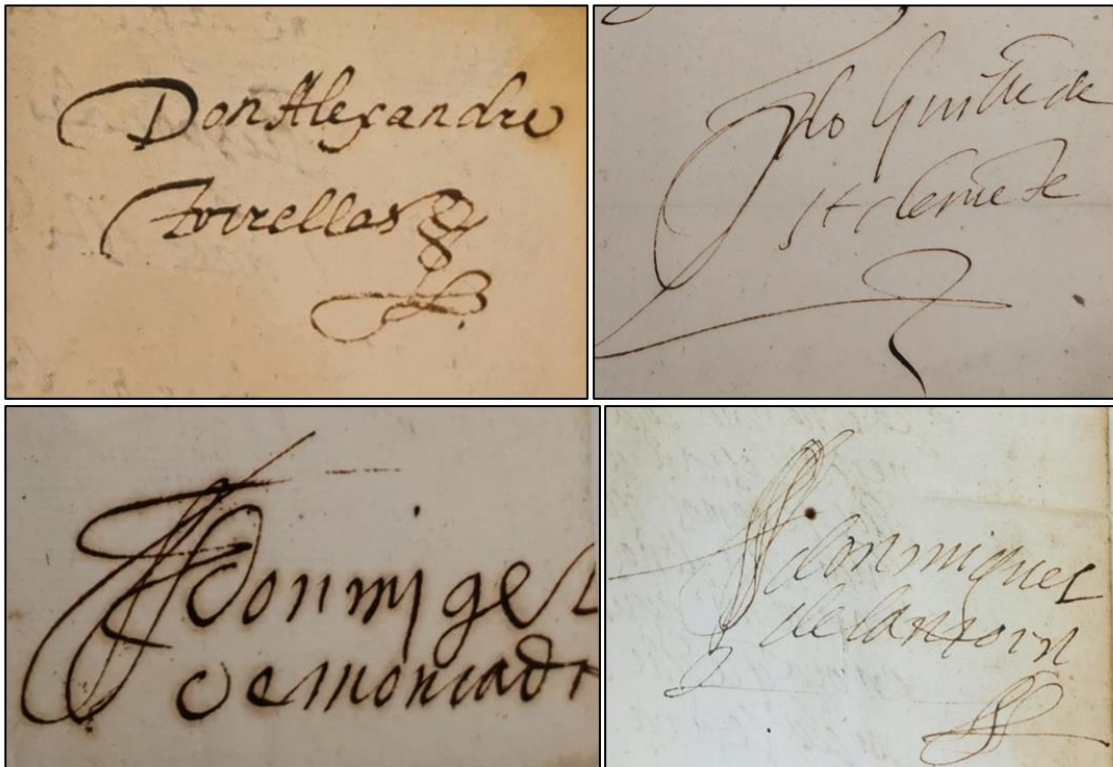 Don Alexandre
torrellas
de
st clemete
don migel
de moncada
don miguel
de lanzorn